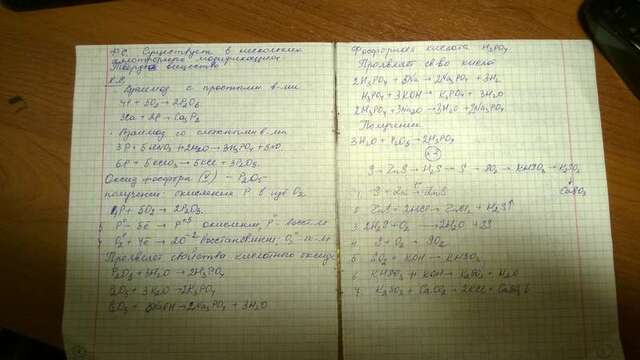 Ф.С. Существует в нескольких
аллотропных модификациях
Твердое вещество
Х.С.
Взаимод. с простыми в-ми
4P + 5O₂ → 2P₂O₅
3Ca + 2P → Ca₃P₂
Взаимод со сложными в-ми
3P + 5HNO₃ + 2H₂O → 3H₃PO₄ + 5NO
6P + 5KClO₃ → 5KCl + 3P₂O₅
Оксид фосфора (V) – P₂O₅
получение: окисление P в изб O₂
4P + 5O₂ → 2P₂O₅
P⁰ – 5e → P⁺⁵ окисление, P⁰
O₂⁰ + 4e → 2O⁻² восстановление, O₂⁰
Проявляет свойства кислотного оксида
P₂O₅ + 3H₂O → 2H₃PO₄
P₂O₅ + 3K₂O → 2K₃PO₄
P₂O₅ + 6NaOH → 2Na₃PO₄ + 3H₂O
Фосфорная кислота H₃PO₄
Проявляет св-во кислот
2H₃PO₄ + 6Na → 2Na₃PO₄ + 3H₂
H₃PO₄ + 3KOH → K₃PO₄ + 3H₂O
2H₃PO₄ + 3Na₂O → 3H₂O + 2Na₃PO₄
Получение
3H₂O + P₂O₅ → 2H₃PO₄
S → ZnS → H₂S → S → SO₂ → KHSO₃ → K₂SO₃
↓
CaSO₃
1. S + Zn → ZnS
2. ZnS + 2HCl → ZnCl₂ + H₂S↑
3. 2H₂S + O₂ → 2H₂O + 2S
4. S + O₂ → SO₂
5. SO₂ + KOH → KHSO₃
6. KHSO₃ + KOH → K₂SO₃ + H₂O
7. K₂SO₃ + CaCl₂ → 2KCl + CaSO₃↓